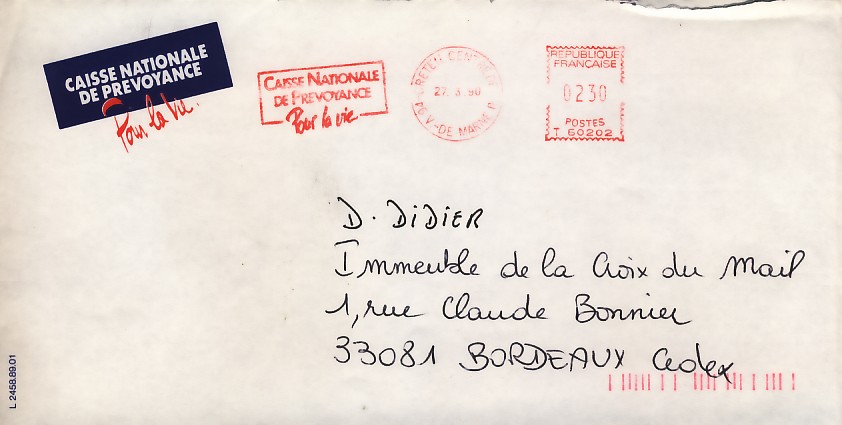 CAISSE NATIONALE
DE PREVOYANCE
Pour la vie.
CAISSE NATIONALE
DE PREVOYANCE
Pour la vie
CRETEIL
27. 3. 90
V.-DE MARNE
REPUBLIQUE
FRANCAISE
0230
POSTES
T 60202
D. DIDIER
Immeuble de la Croix du Mail
1, rue Claude Bonnier
33081 BORDEAUX Cedex
L 2458.89.01